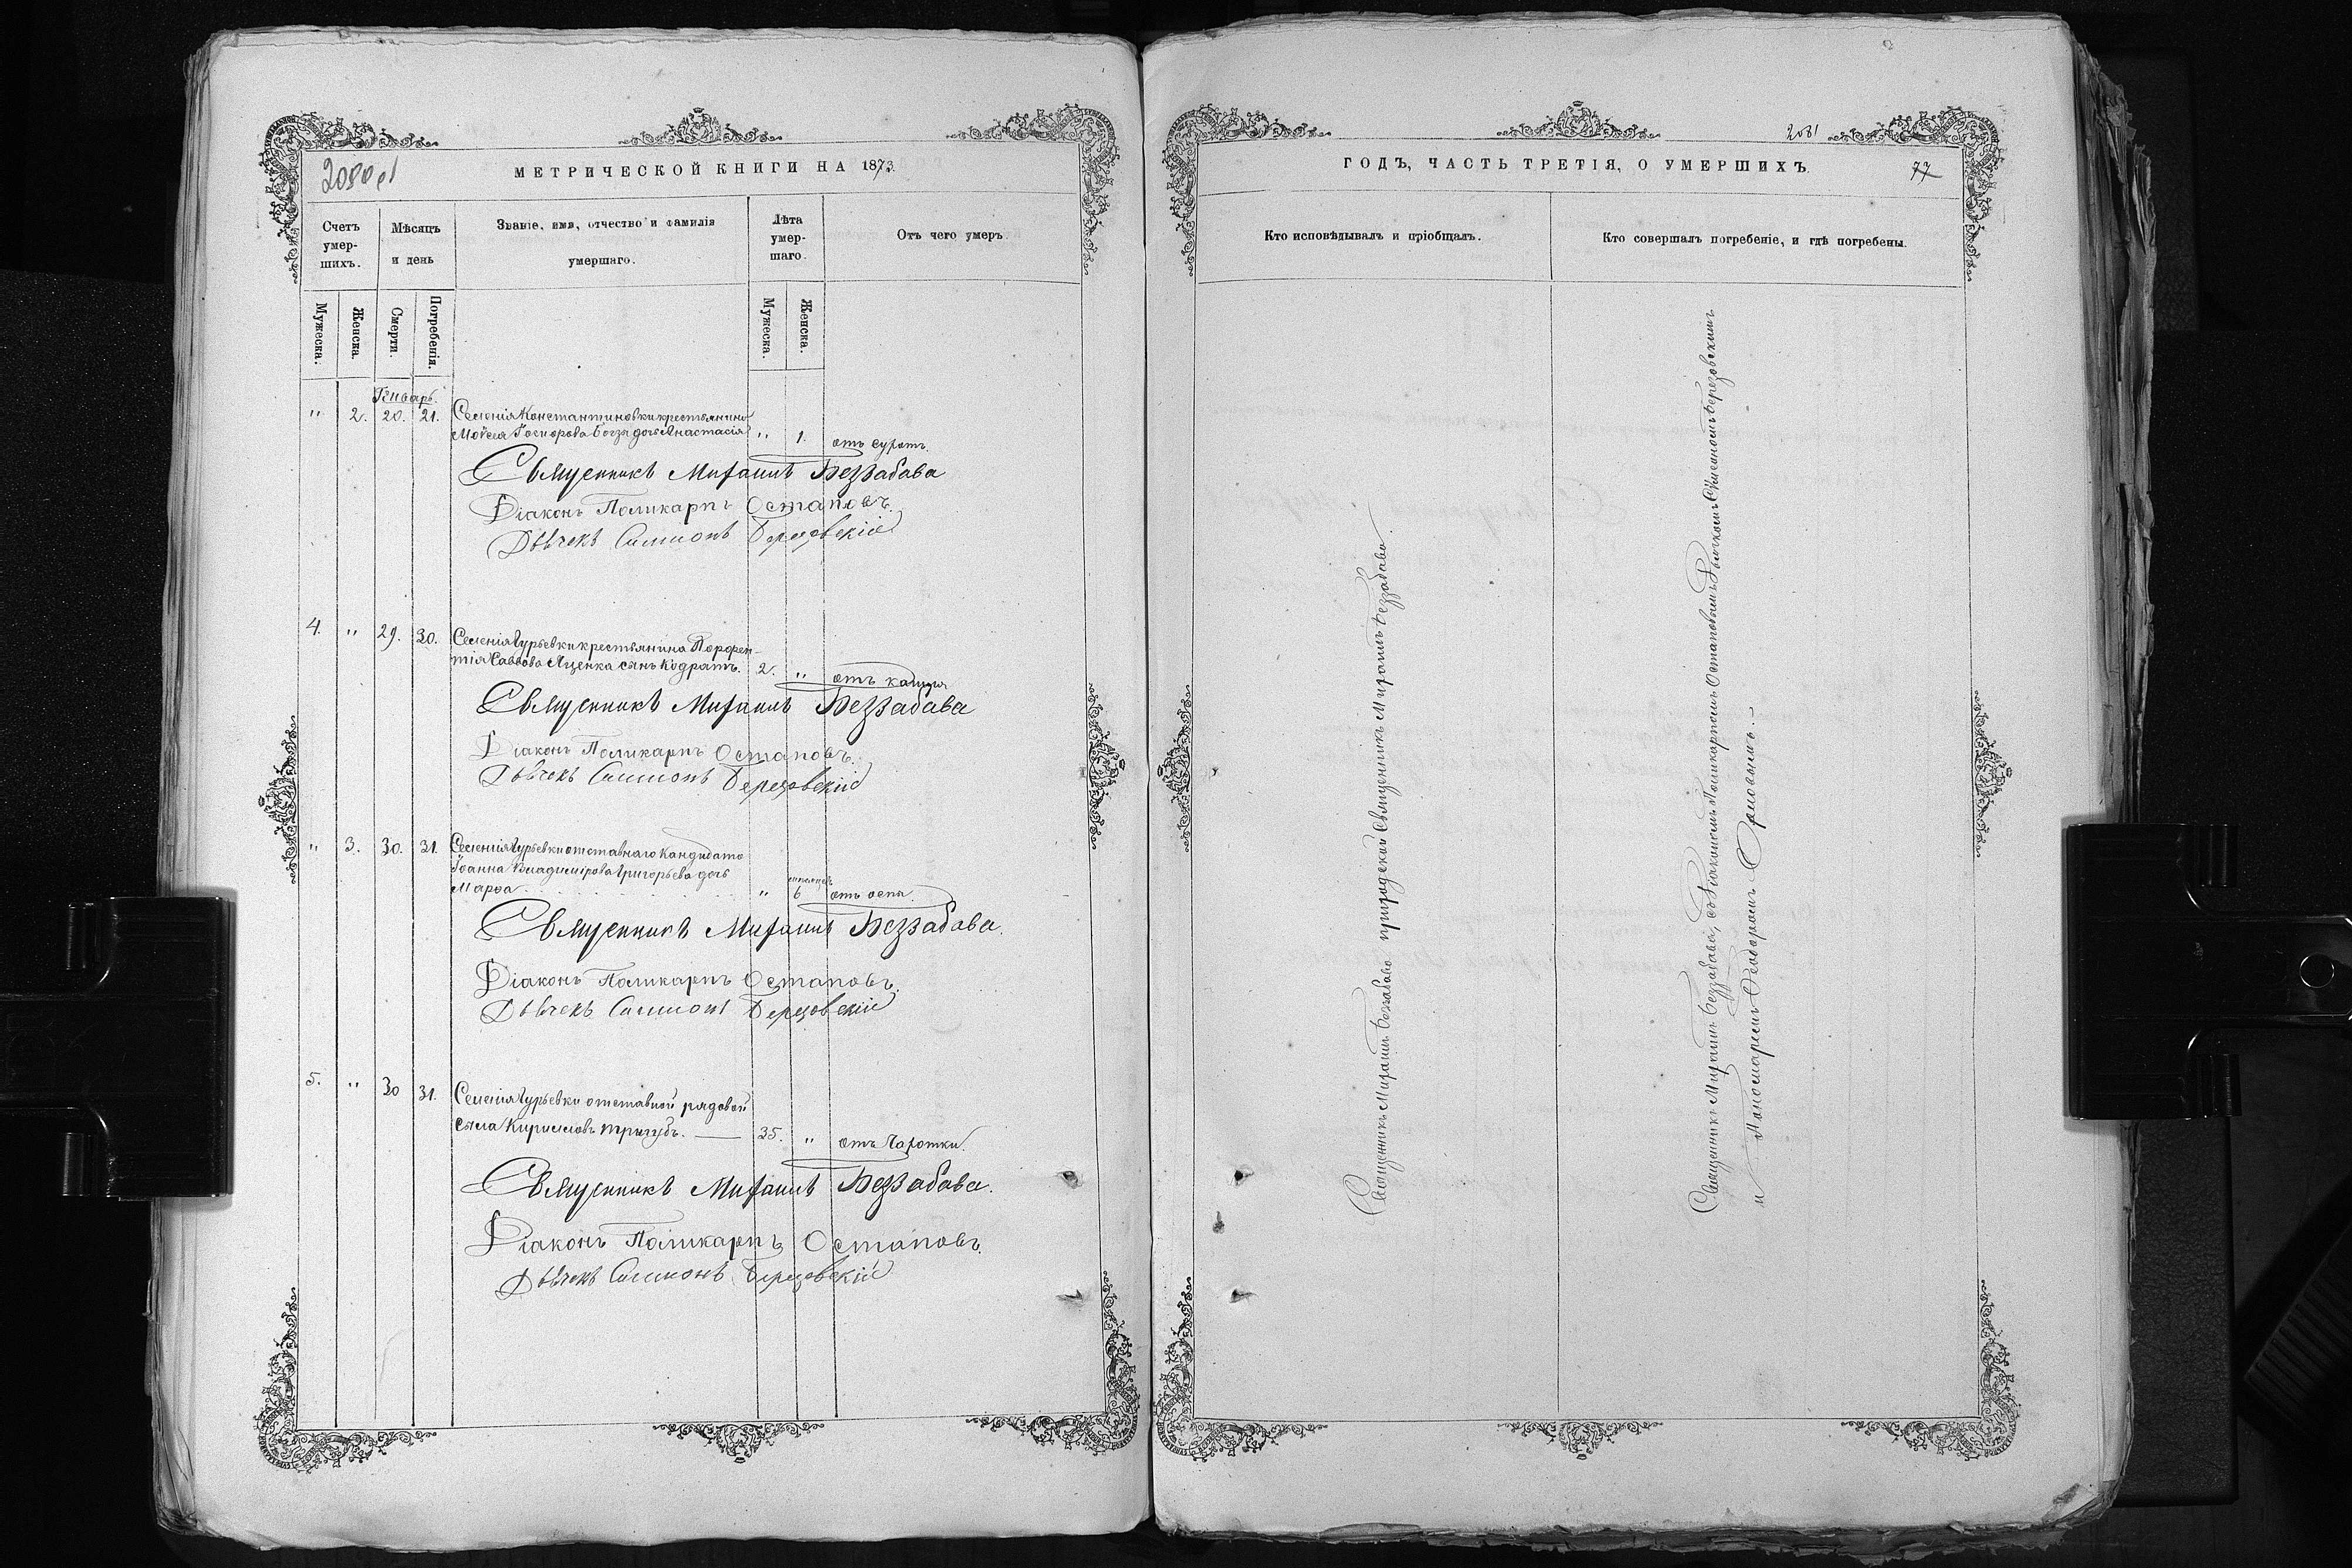 2080 об
МЕТРИЧЕСКОЙ КНИГИ НА 1873.
Счетъ умер-шихъ.
Мѣсяцъ и день
Званіе, имя, отчество и фамилія умершаго.
Лѣта умер-шаго.
Отъ чего умеръ.
Мужеска.
Женска.
Смерти.
Погребенія.
Мужеска.
Женска.
Генварь.
" 2. 20. 21. Селенія Константиновки крестьянина
Мойсея дочь Анастасія " 1. отъ сухотъ.
Священникъ Михаилъ Беззабава
Діаконъ Поликарпъ Остаповъ.
Дьячекъ Симеонъ Березовскій
4. " 29. 30. Селенія Гурьевки крестьянина Порфен-
тія Саввова Яценка сынъ Кодратъ. 2. " отъ кашля
Священникъ Михаилъ Беззабава
Діаконъ Поликарпъ Остаповъ.
Дьячекъ Симеонъ Березовскій
" 3. 30. 31. Селенія Гурьевки отставнаго Кандидата
Іоанна Владимірова Григорьева дочь
Марфа " 6 отъ оспы.
Священникъ Михаилъ Беззабава.
Діаконъ Поликарпъ Остаповъ.
Дьячекъ Симеонъ Березовскій
5. " 30 31. Селенія Гурьевки отставной рядовой
Сыла Кирилловъ Тригубъ. — 35. " отъ Чахотки.
Священникъ Михаилъ Беззабава.
Діаконъ Поликарпъ Остаповъ.
Дьячекъ Симеонъ Березовскій
2081
ГОДЪ, ЧАСТЬ ТРЕТІЯ, О УМЕРШИХЪ.
77
Кто исповѣдывалъ и пріобщалъ.
Кто совершалъ погребеніе, и гдѣ погребены.
Священникъ Михаилъ Беззабава Священникъ Михаилъ Беззабава.
Священникъ Михаилъ Беззабава, съ Діакономъ Поликарпомъ Остаповымъ Дьячкомъ Симеономъ Березовскимъ
и Пономаремъ Ѳеодоромъ